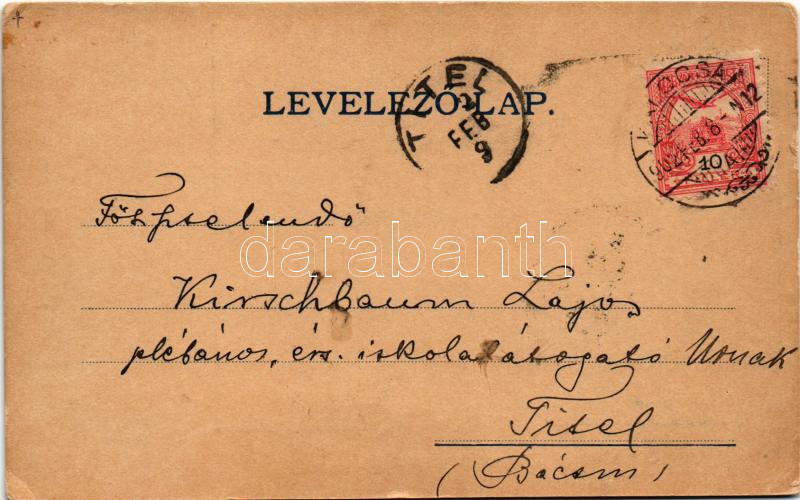 LEVELEZŐ-LAP.
TITEL
2
FEB
9
KALOCSA
902 FEB. 8
10
Főtisztelendő
darabanth
Kirschbaum Lajos
plébános, érs. iskolalátogató Urnak
Titel
(Bácsm)